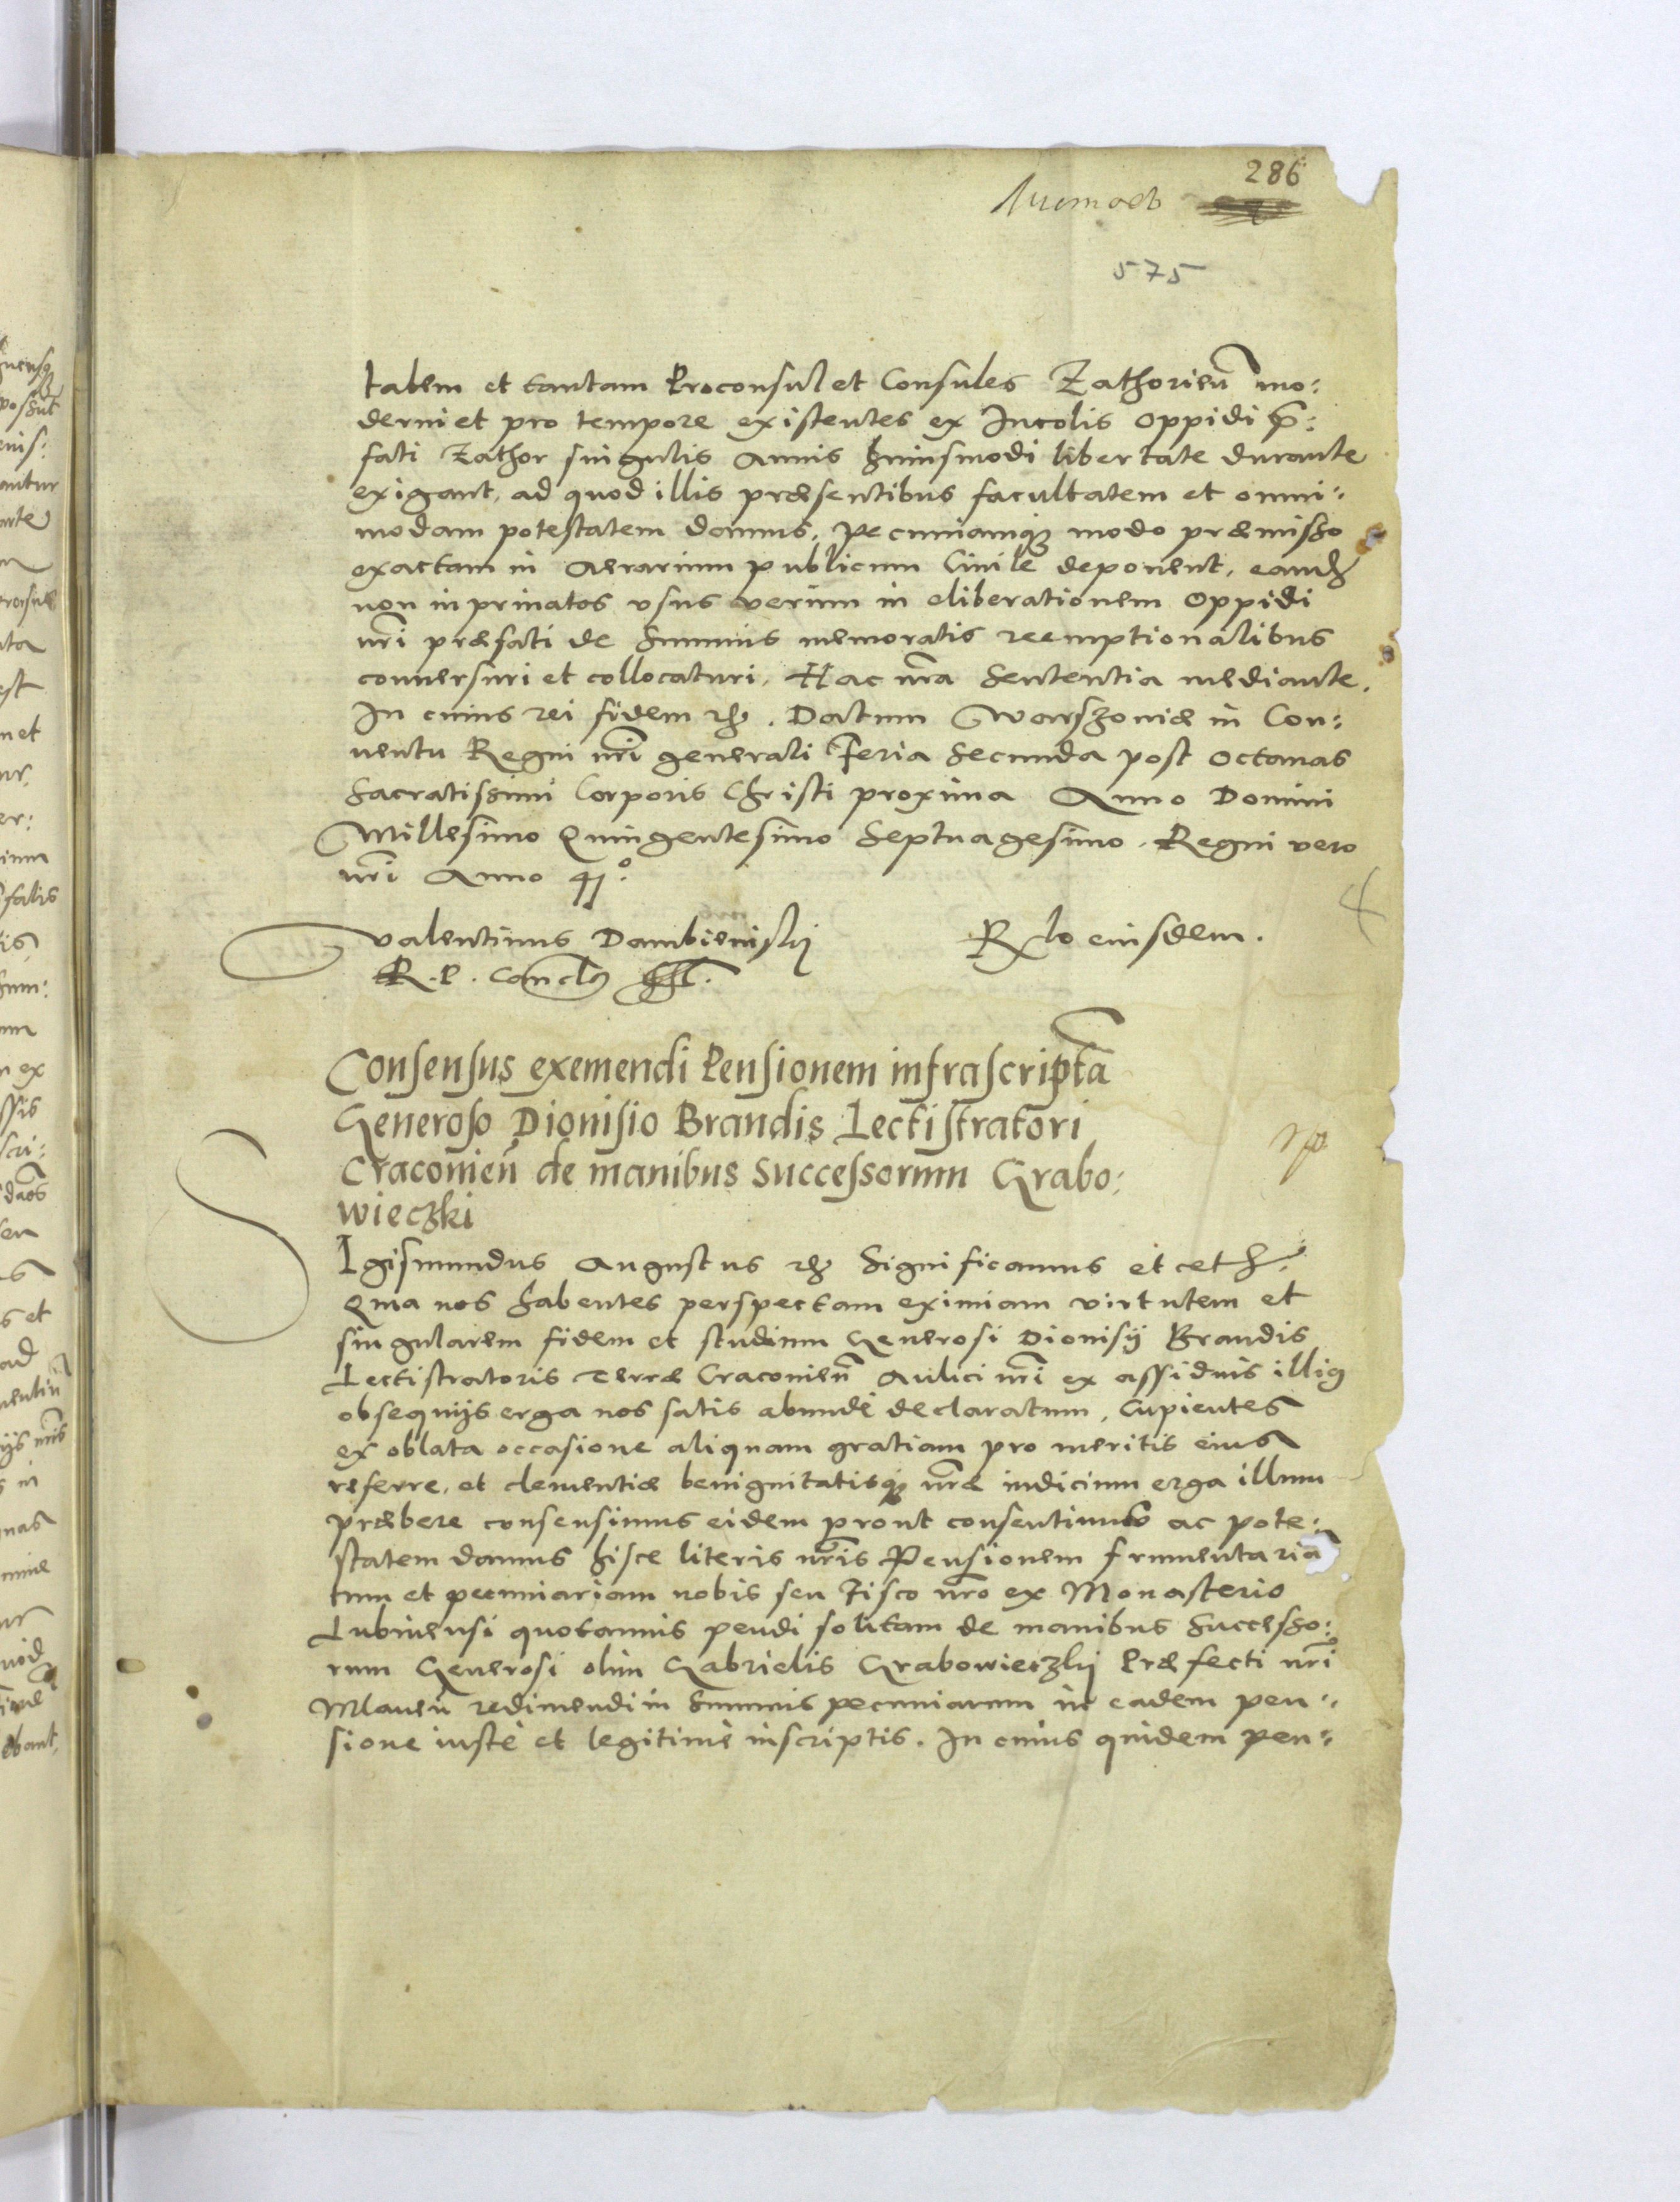 286
Листов
575
talem et tantam Proconsul et Consules Zathorien̄ mo:
derni et pro tempore existentes ex Incolis Oppidi p̄:
fati Zathor singulis Annis huiusmodi libertate durante
exigant, ad quod illis præsentibus facultatem et omni:
modam potestatem damus, Pecuniamq₃ modo præmisso
exactam in Aerarium publicum Ciuile deponent, eand₃
non in priuatos vsus verum in eliberationem Oppidi
nr̄i præfati de summis memoratis reemptionalibus
conuersuri et collocaturi, Hac nr̄a Sententia mediante.
In cuius rei fidem etc. Datum Warszouiæ in Con:
uentu Regni nr̄i generali Feria Secunda post Octauas
Sacratissimi Corporis Christi proxima Anno Domini
Millesimo Quingentesimo Septuagesimo. Regni vero
nr̄i Anno 41°.
Valentinus Dambienskj
R. P. Conclus sst.
Rlo eiusdem.
Consensus exemendi Pensionem infrascriptā
Generoso Dionisio Brandis Lectistratori
Cracouien̄ de manibus Successorum Grabo:
wieczki
SIgismundus Augustus etc Significamus et ceth.
Qma nos habentes perspectam eximiam virtutem et
singularem fidem et studium Generosi Dionisij Brandis
Lectistratoris Terræ Cracouien̄ Aulici nr̄i ex assiduis illiq
obsequijs erga nos satis abunde declaratum, Cupientes
ex oblata occasione aliquam gratiam pro meritis eius
referre, et clementiæ benignitatisq₃ nr̄æ indicium erga illum
præbere consensimus eidem prout consentimus ac pote:
statem damus hisce literis nr̄is Pensionem frumentariā
tum et pecuniariam nobis seu Fisco nr̄o ex Monasterio
Lubinensi quotannis pendi solitam de manibus Successo:
rum Generosi olim Gabrielis Grabowieczkj Præfecti nr̄i
Mlauen̄ redimendi in summis pecuniarum in eadem pen:
sione iustè et legitimè inscriptis. In cuius quidem pen: